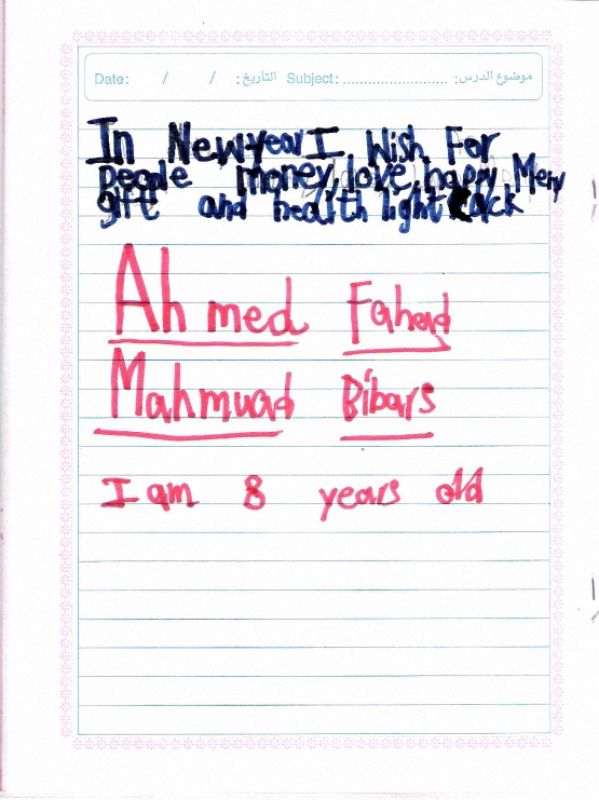 Date: / / التأريخ: Subject: ........................ موضوع الدرس:
In Newyear I Wish For
people money, love, happy Mery
gift and health light
Ahmed Fahead
Mahmuad Bibars
I am 8 years old